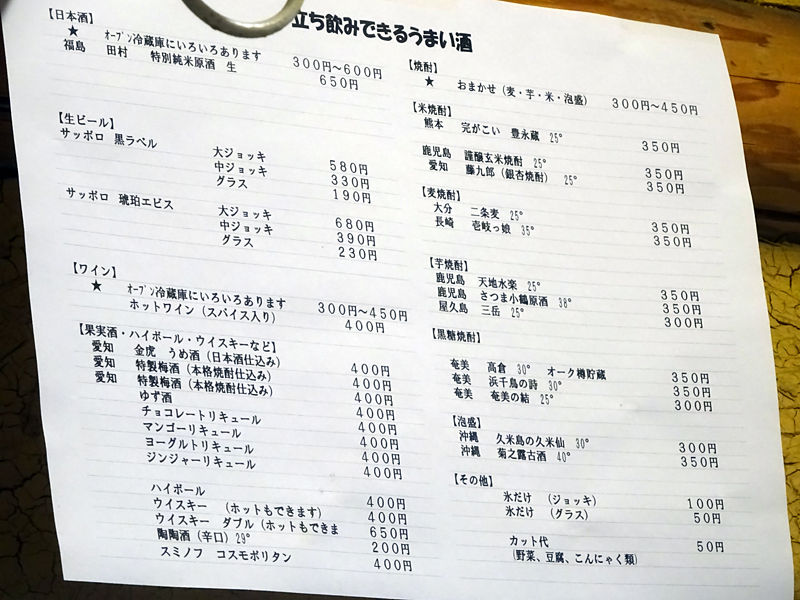 立ち飲みできるうまい酒
【日本酒】
★ オープン冷蔵庫にいろいろあります 300円～600円
福島 田村 特別純米原酒 生 650円
【生ビール】
サッポロ 黒ラベル
大ジョッキ 580円
中ジョッキ 330円
グラス 190円
サッポロ 琥珀ヱビス
大ジョッキ 680円
中ジョッキ 390円
グラス 230円
【ワイン】
★ オープン冷蔵庫にいろいろあります 300円～450円
ホットワイン（スパイス入り） 400円
【果実酒・ハイボール・ウイスキーなど】
愛知 金虎 うめ酒（日本酒仕込み） 400円
愛知 特製梅酒（本格焼酎仕込み） 400円
愛知 特製梅酒（本格焼酎仕込み） 400円
ゆず酒 400円
チョコレートリキュール 400円
マンゴーリキュール 400円
ヨーグルトリキュール 400円
ジンジャーリキュール 400円
ハイボール 400円
ウイスキー （ホットもできます） 400円
ウイスキー ダブル（ホットもできま 650円
陶陶酒（辛口）29° 200円
スミノフ コスモポリタン 400円
【焼酎】
★ おまかせ（麦・芋・米・泡盛） 300円～450円
【米焼酎】
熊本 完がこい 豊永蔵 25° 350円
鹿児島 謹醸玄米焼酎 25° 350円
愛知 藤九郎（銀杏焼酎） 25° 350円
【麦焼酎】
大分 二条麦 25° 350円
長崎 壱岐っ娘 35° 350円
【芋焼酎】
鹿児島 天地水楽 25° 350円
鹿児島 さつま小鶴原酒 38° 350円
屋久島 三岳 25° 300円
【黒糖焼酎】
奄美 高倉 30° オーク樽貯蔵 350円
奄美 浜千鳥の詩 30° 350円
奄美 奄美の結 25° 300円
【泡盛】
沖縄 久米島の久米仙 30° 300円
沖縄 菊之露古酒 40° 350円
【その他】
氷だけ （ジョッキ） 100円
氷だけ （グラス） 50円
カット代 50円
（野菜、豆腐、こんにゃく類）